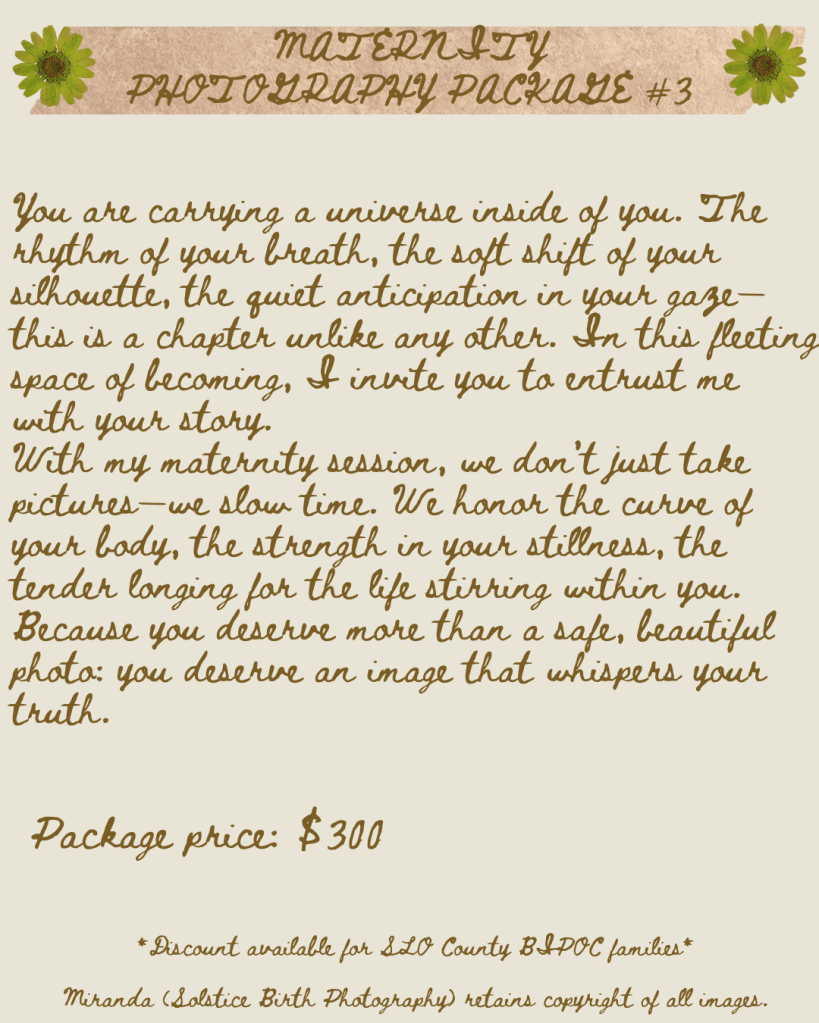 MATERNITY
PHOTOGRAPHY PACKAGE #3
You are carrying a universe inside of you. The
rhythm of your breath, the soft shift of your
silhouette, the quiet anticipation in your gaze—
this is a chapter unlike any other. In this fleeting
space of becoming, I invite you to entrust me
with your story.
With my maternity session, we don't just take
pictures—we slow time. We honor the curve of
your body, the strength in your stillness, the
tender longing for the life stirring within you.
Because you deserve more than a safe, beautiful
photo: you deserve an image that whispers your
truth.
Package price: $300
*Discount available for SLO County BIPOC families*
Miranda (Solstice Birth Photography) retains copyright of all images.